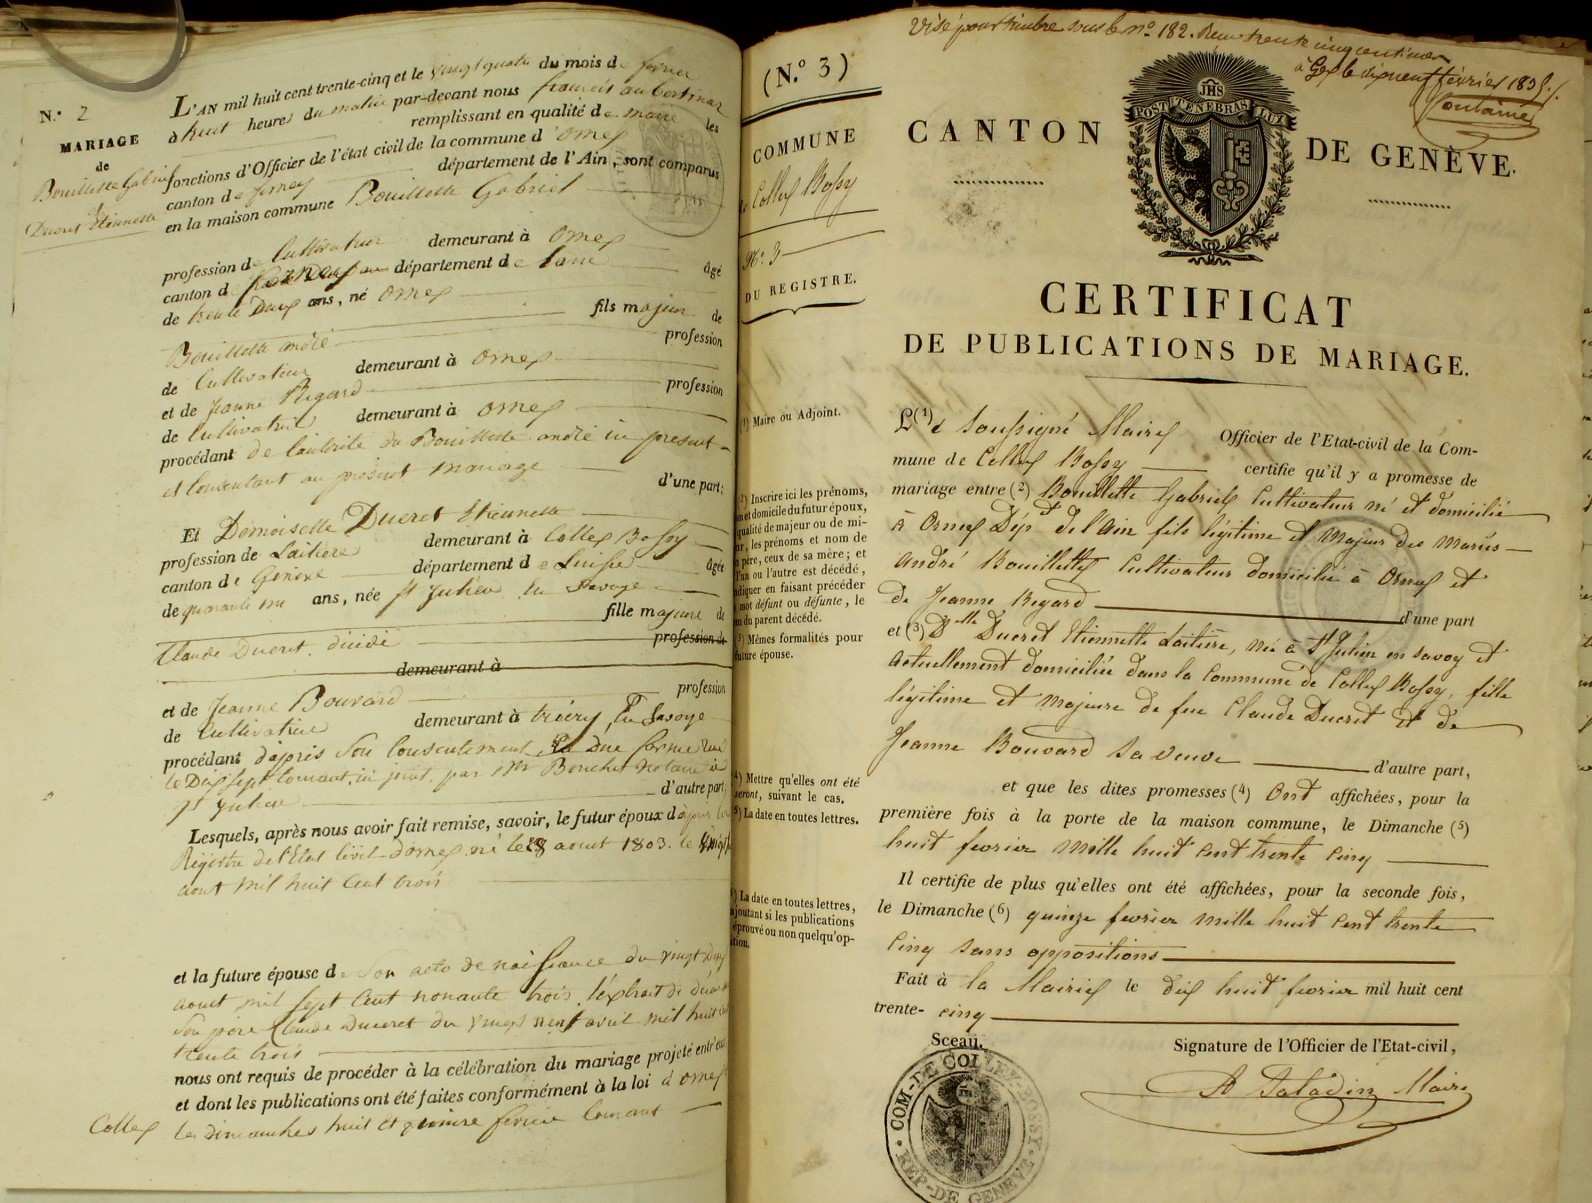 N.° 2
MARIAGE
de
Bouillette Gabriel
&
Ducret Etiennette
L'AN mil huit cent trente-cinq et le vingt quatre du mois de fevrier
à huit heures du matin par-devant nous françois
remplissant en qualité de maire les
fonctions d'Officier de l'état civil de la commune d'ornex
canton de ferney département de l'Ain, sont comparus
en la maison commune Bouillette Gabriel
profession de Cultivateur demeurant à Ornex
canton de département de Lain âgé
de trente Deux ans, né Ornex
fils majeur de
Bouillette andré profession
de Cultivateur demeurant à Ornex
et de Jeanne Regard profession
de Cultivatrice demeurant à Ornex
procédant de lautorité du Bouillette andré ici present
et consentant au présent mariage d'une part;
Et Demoiselle Ducret Etiennette
profession de Laitiere demeurant à Collex Bossy
canton de Genève département de Suisse âgée
de quarante un ans, née st Julien en Savoye
fille majeure de
Claude Ducret. décédé profession de
demeurant à
et de Jeanne Bouvard profession
de Cultivatrice demeurant à en Savoye
procédant d'après Son Consentement en Düe forme
le Dix sept Courant, ici joint, par Mr Bouchet Notaire à
St Julien d'autre part;
Lesquels, après nous avoir fait remise, savoir, le futur époux d'après les
Registre de l'Etat Civil dornex né le 28 aout 1803. le
aout mil huit Cent trois
et la future épouse de Son acte de naissance du vingt Deux
aout mil sept Cent nonante trois, l'éxtrait de décès de
Son père Claude Ducret du vingt neuf avril mil huit cent
trente trois
nous ont requis de procéder à la célébration du mariage projeté entr'eux
et dont les publications ont été faites conformément à la loi à Ornex
Collex les dimanches huit et quinze fevrier Courant
Visé pour timbre sous le n.° 182. Reçu trente cinq centimes
à Gex le dixneuf février 1835.
(N.° 3)
COMMUNE
de Collex Bossy
N.° 3
DU REGISTRE.
CANTON DE GENÈVE.
JHS
POST TENEBRAS LUX
CERTIFICAT
DE PUBLICATIONS DE MARIAGE.
(1) Maire ou Adjoint.
(2) Inscrire ici les prénoms,
nom et domicile du futur époux,
qualité de majeur ou de mi-
neur, les prénoms et nom de
son père, ceux de sa mère; et
si l'un ou l'autre est décédé,
l'indiquer en faisant précéder
du mot défunt ou défunte, le
nom du parent décédé.
(3) Mêmes formalités pour
la future épouse.
(4) Mettre qu'elles ont été
ou seront, suivant le cas.
(5) La date en toutes lettres.
(6) La date en toutes lettres,
en ajoutant si les publications
ont éprouvé ou non quelqu'op-
position.
L(1)e Soussigné Maire Officier de l'Etat-civil de la Com-
mune de Collex Bossy certifie qu'il y a promesse de
mariage entre (2) Bouillette Gabriel Cultivateur né et domicilié
à Ornex Dép.t de l'Ain fils légitime et majeur des mariés
André Bouillette Cultivateur domicilié à Ornex et
de Jeanne Regard d'une part
et (3) D.lle Ducret Etiennette Laitière, née à S.t Julien en Savoy et
actuellement domiciliée dans la Commune de Collex Bossy, fille
légitime et majeure de feu Claude Ducret et de
Jeanne Bouvard sa veuve d'autre part,
et que les dites promesses (4) Ont affichées, pour la
première fois à la porte de la maison commune, le Dimanche (5)
huit fevrier mille huit cent trente cinq
Il certifie de plus qu'elles ont été affichées, pour la seconde fois,
le Dimanche (6) quinze fevrier mille huit cent trente
cinq sans oppositions
Fait à la Mairie le dix huit fevrier mil huit cent
trente-cinq
Sceau. Signature de l'Officier de l'Etat-civil,
A Saladin Maire
COM-DE COLLEX-BOSSY
REP-DE GENEVE